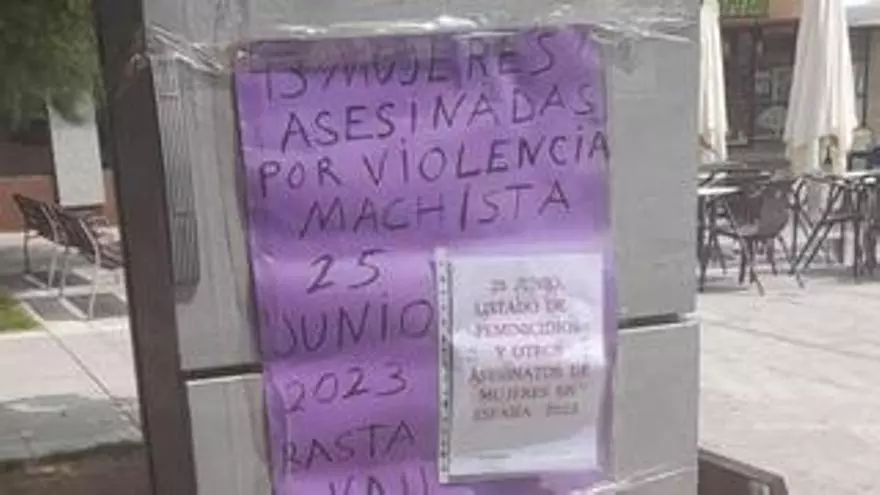 MUJERES
ASESINADAS
POR VIOLENCIA
MACHISTA
25
JUNIO
2023
BASTA
YA!!
25 JUNIO.
LISTADO DE
FEMINICIDIOS
Y OTROS
ASESINATOS DE
MUJERES EN
ESPAÑA